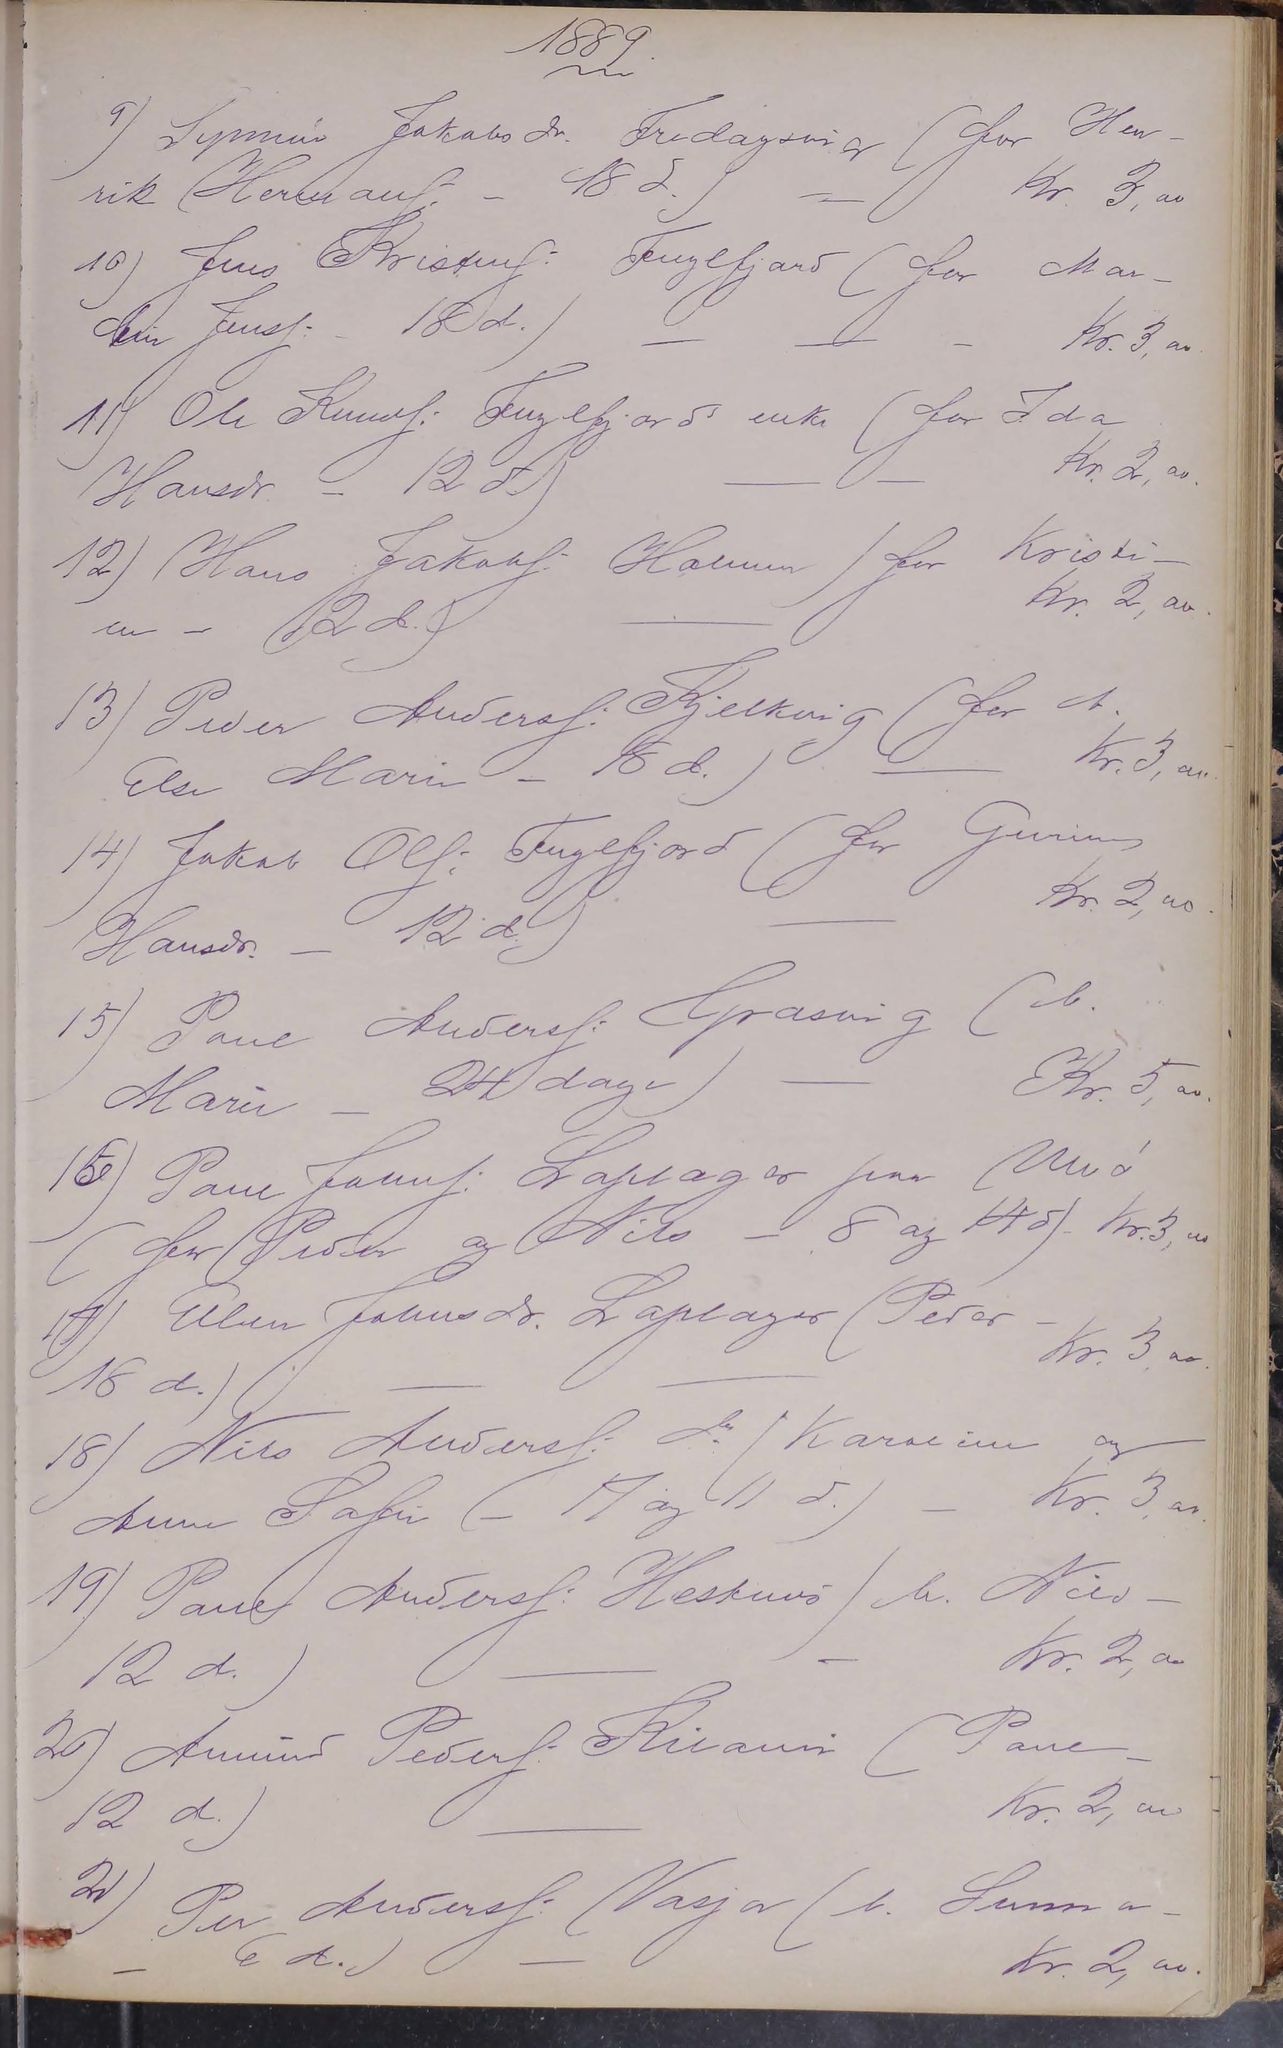 1889.
9) Symniv Jakobsdr. Fredagsvig (for Hen-
rik Hermansf: - 18 d.) - Kr. 3,00
10) Jens Kristensf: Fuglefjord (for Mar-
tin Jensf: - 18 d.) - - - Kr. 3,00
11) Ole Knudsf: Fuglefjords enke (for Ida
Hansdr. - 12 d.) - - Kr. 2,00.
12) Hans Jakobsf: Holmen (for Kristi-
an - 12 d.) - Kr. 2,00.
13) Peder Andersf: Kjelkvig (for b.
Else Marie - 18 d.) - Kr. 3,00.
14) Jakob Olsf: Fuglefjord (for Gurine
Hansdr. - 12 d.) - Kr. 2,00.
15) Paul Andersf: Grasvig (b.
Marie - 24 dage) - Kr. 5,00.
16) Paul Johnsf: Laplager paa
(for Peder og Nils - 8 og 14 d) - Kr. 3,00
17) Ellen Johnsdr. Laplager (Peder -
16 d.) - - Kr. 3,00.
18) Nils Andersf: do (Karoline og
Anne Sofie - 17 og 11 d.) - Kr. 3,00.
19) Paul Andersf: Hestnes (b. Nils -
12 d.) - - Kr. 2,00
20) Amund Pedersf: (Paul -
12 d.) - Kr. 2,00
21) Per Andersf: Vasja (b. Sunna -
- 6 d.) - Kr. 2,00.